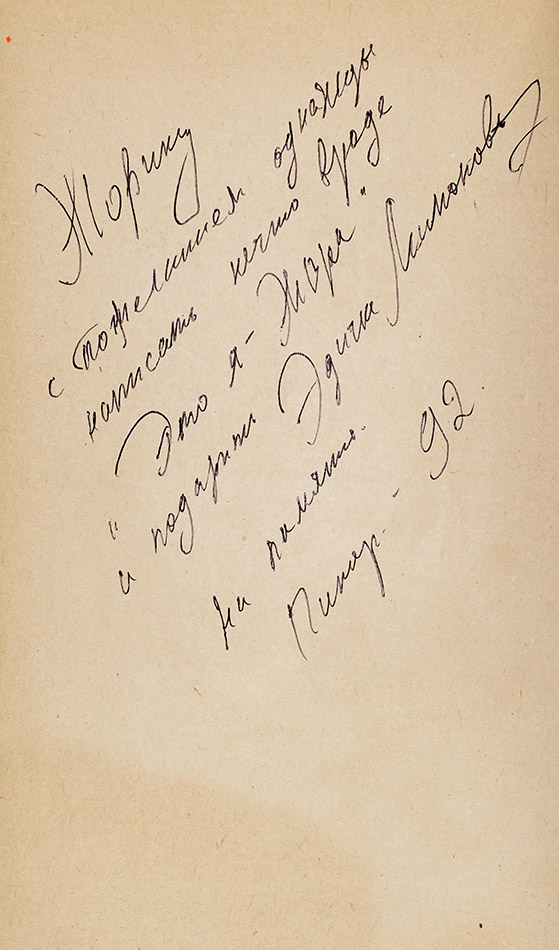 Жорику
с пожеланием однажды
написать нечто вроде
"Это я - Жора"
и подарить Эдичке Лимонову
на память.
92